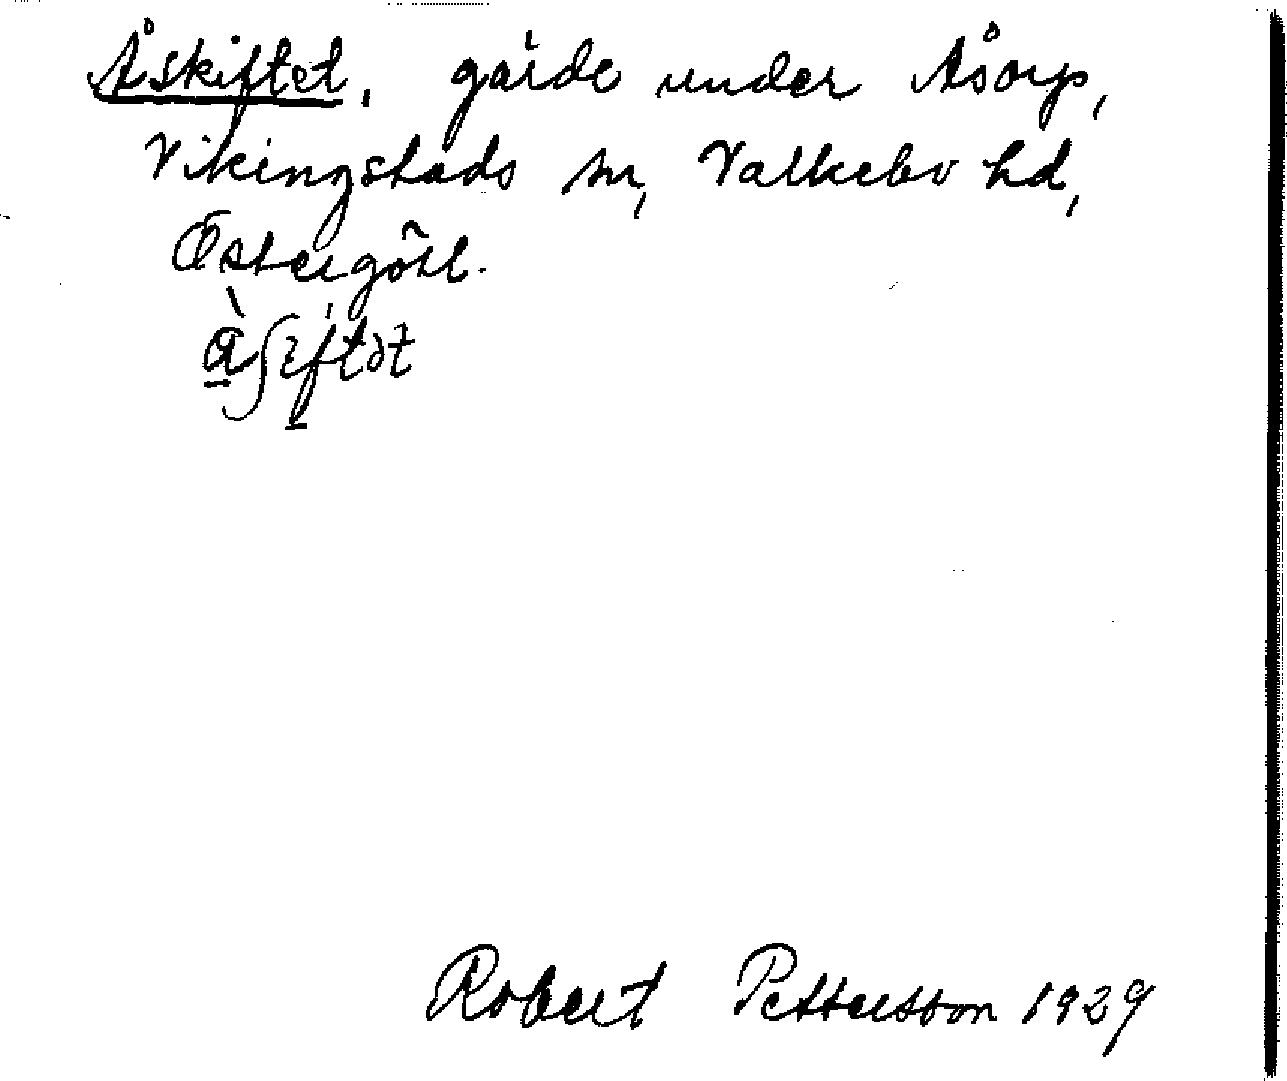 Åskiftet, gärde under Åsorp,
Vikingstads sn, Valkebo hd,
Östergötl.
Robert Pettersson 1929